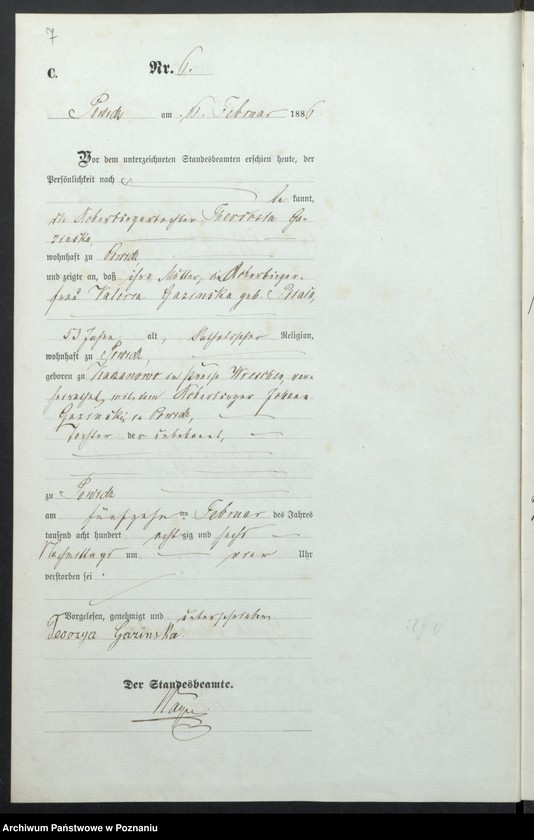 7
C.
Nr. 6.
Powidz am 16. Februar 1886
Vor dem unterzeichneten Standesbeamten erschien heute, der
Persönlichkeit nach
be kannt,
die Ackerbürgertochter Theodosia Ga-
zinska,
wohnhaft zu Powidz,
und zeigte an, daß ihre Mutter, die Ackerbürger-
frau Valeria Gazinska geb.
53 Jahre alt, katholischer Religion,
wohnhaft zu Powidz,
geboren zu im Kreise Wreschen, ver-
heirathet mit dem Ackerbürger Johann
Gazinski in Powidz,
Tochter der unbekannt,
zu Powidz
am fünfzehn ten Februar des Jahres
tausend acht hundert acht zig und sechs
Nachmittags um vier Uhr
verstorben sei.
Vorgelesen, genehmigt und unterschrieben
Teozya Gazinska.
Der Standesbeamte.
Archiwum Państwowe w Poznaniu